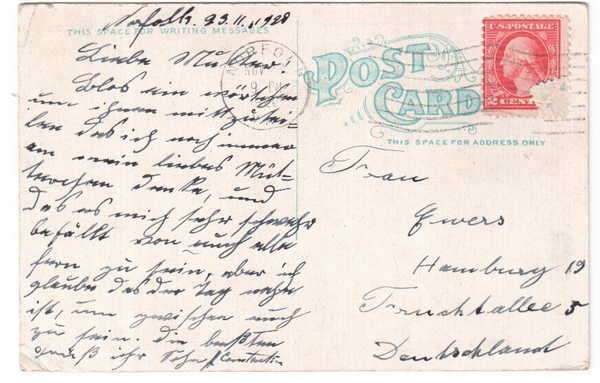 Norfolk. 23.11.1928
THIS SPACE FOR WRITING MESSAGES
Liebe Mutter!
Blos ein wörtchen
um ihnen mittzutei-
len das ich noch immer
an mein liebes Müt-
terchen denke, und
das es mich sehr schwehr
befällt von euch alle
fern zu sein, aber ich
glaube das der Tag nahe
ist, um zwischen euch
zu sein. Die besten
ihr Sohn
NORFOLK
NOV
POST
CARD
THIS SPACE FOR ADDRESS ONLY
2 CENTS
Frau
Ewers
Hamburg 19
Fruchtallee 5
Deutschland